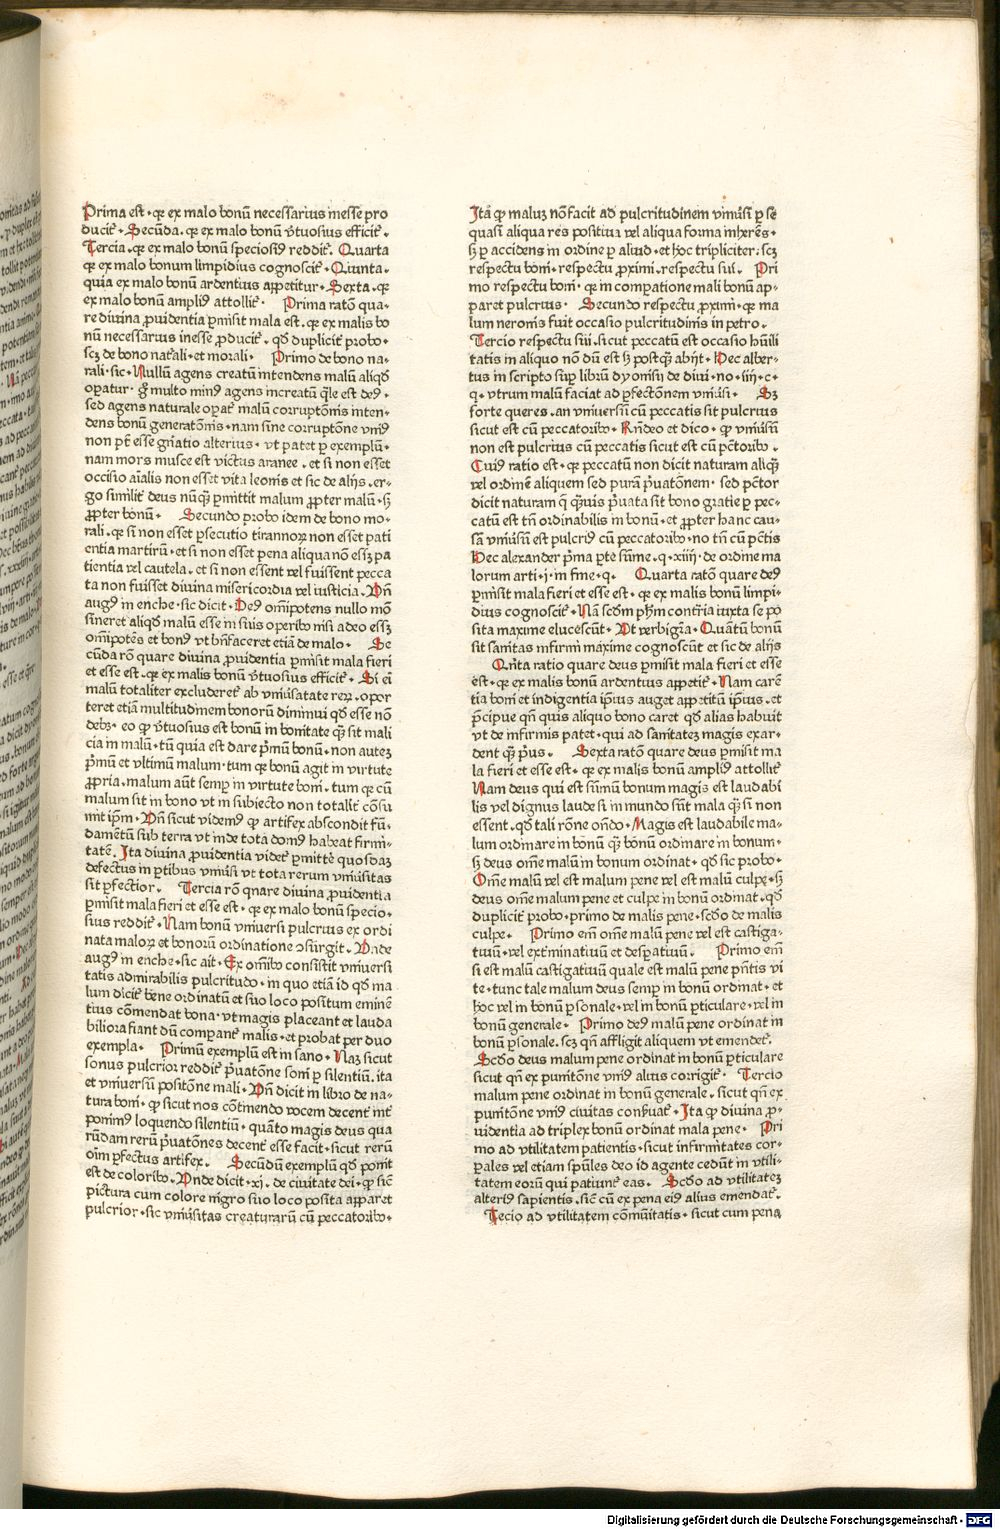 Prima est · qꝛ ex malo bonū necessarius inesse pro
ducit᷑ · Secūda · qꝛ ex malo bonū v̓tuosius efficit᷑ ·
Tercia · qꝛ ex malo bonū speciosiꝰ reddit᷑ · Quarta
qꝛ ex malo bonum limpidius cognoscit᷑ · Quinta ·
quia ex malo bonū ardentius appetitur · Sexta · qꝛ
ex malo bonū ampliꝰ attollit᷑ · Prima ratō qua-
re diuina ꝓuidentia ꝑmisit mala est · qꝛ ex malis bo
nū necessarius inesse ꝓducit᷑ · qd̄ duplicit᷑ probo ·
scꝫ de bono nat᷑ali · et morali · Primo de bono na-
rali · sic · Nullū agens creatū intendens malū aliqd̄
oꝑatur · g̊ multo minꝰ agens increatū q̄le est deꝰ ·
sed agens naturale oꝑat᷑ malū corruptōnis inten-
dens bonū generatōnis · nam sine corruptōne vniꝰ
non pt̄ esse gn̄atio alterius · vt patet ꝑ exemplū ·
nam mors musce est victus aranee · et si non esset
occisio aīalis non esset vita leonis et sic de alijs · er-
go similit᷑ deus nūqꝫ ꝑmittit malum ꝓpter malū · sꝫ
ꝓpter bonū · Secundo ꝓbo idem de bono mo-
rali · qꝛ si non esset ꝑsecutio tirannoꝝ non esset pati
entia martirū · et si non esset pena aliqua nō essꝫ pa
tientia vel cautela · et si non essent vel fuissent pecca
ta non fuisset diuina misericordia vel iusticia · Vn̄
augꝰ in enche · sic dicit · Deꝰ om̄ipotens nullo mō
sineret aliqd̄ malū esse in suis operibꝰ nisi adeo essꝫ
om̄ipotēs et bonꝰ vt bn̄faceret etiā de malo · Se
cūda rō quare diuina ꝓuidentia ꝑmisit mala fieri
et esse est · qꝛ ex malis bonū v̓tuosius efficit᷑ · Si eī
malū totaliter excluderet᷑ ab vniūsatate reꝝ · opor
teret etiā multitudinem bonorū diminui qd̄ esse nō
debꝫ · eo ꝙ v̓tuosius est bonū in bonitate qꝫ sit mali
cia in malū · tū quia est dare p̄mū bonū · non autez
p̄mū et vltimū malum · tum qꝛ bonū agit in virtute
ꝓpria · malum aūt semꝑ in virtute boni · tum qꝛ cū
malum sit in bono vt in subiecto non totalit᷑ cōsu
mit ip̄m · Vn̄ sicut videmꝰ ꝙ artifex abscondit fū-
damētū sub terra vt inde tota domꝰ habeat firmi-
tatē · Ita diuina ꝓuidentia videt᷑ ꝑmitt̓e quosdaꝫ
defectus in ꝑtibus vniūsi vt tota rerum vniūsitas
sit ꝑfectior · Tercia rō quare diuina ꝓuidentia
ꝑmisit mala fieri et esse est · qꝛ ex malo bonū specio-
sius reddit᷑ · Nam bonū vniuersi pulcrius ex ordi
nata maloꝝ et bonorū ordinatione ɔsurgit · Vnde
augꝰ in enche · sic ait · Ex om̄ibꝰ consistit vniuersi
tatis admirabilis pulcritudo · in quo etiā id qd̄ ma
lum dicit᷑ bene ordinatū et suo loco positum eminē
tius cōmendat bona · vt magis placeant et lauda
biliora fiant dum cōparant᷑ malis · et probat per duo
exempla · Primū exemplū est in sano · Naꝫ sicut
sonus pulcrior reddit᷑ p̄uatōne soni ꝑ silentiū · ita
et vniuersū positōne mali · Vn̄ dicit in libro de na-
tura boni · ꝙ sicut nos cōtinendo vocem decent̓ int̓
ponimꝰ loquendo silentiū · quāto magis deus qua
rūdam rerū p̄uatōnes decent̓ esse facit · sicut rerū
oīm ꝑfectus artifex · Secūdū exemplū qd̄ ponit
est de coloribꝰ · Vnde dicit · xj · de ciuitate dei · ꝙ sic̄
pictura cum colore nigro suo loco posita apparet
pulcrior · sic vniūsitas creaturarū cū peccatoribꝰ ·
Ita ꝙ maluꝫ nō facit ad pulcritudinem vniūsi ꝑ se
quasi aliqua res positiua vel aliqua forma inherēs ·
sꝫ ꝑ accidens in ordine ꝑ aliud · et hoc tripliciter · scꝫ
respectu boni · respectu ꝓximi · respectu sui · Pri
mo respectu boni · qꝛ in comparatione mali bonū ap-
paret pulcrius · Secundo respectu ꝓximi · qꝛ ma
lum neronis fuit occasio pulcritudinis in petro ·
Tercio respectu sui · sicut peccatū est occasio hūili
tatis in aliquo nō dū est sꝫ postqꝫ abijt · Hec alber-
tus in scripto suꝑ librū dyonisij de diui · no · iiij · c ·
q · vtrum malū faciat ad ꝑfectōnem vniūsi · Sꝫ
forte queres · an vniuersū cū peccatis sit pulcrius
sicut est cū peccatoribꝰ · Rn̄deo et dico · ꝙ vniūsū
non est pulcrius cū peccatis sicut est cū pctōribꝰ ·
Cuiꝰ ratio est · qꝛ peccatū non dicit naturam aliqꝫ
vel ordinē aliquem sed purā p̄uatōnem · sed pctōr
dicit naturam q̄ qꝫuis p̄uata sit bono gratie ꝑ pec-
catū est tn̄ ordinabilis in bonū · et ꝓpter hanc cau-
sā vniūsū est pulcriꝰ cū peccatoribꝰ · no tn̄ cū pctīs
Hec alexander p̄ma ꝑte sūme · q · xiiij · de ordine ma
lorum arti · j · in fine · q · Quarta ratō quare deꝰ
ꝑmisit mala fieri et esse est · qꝛ ex malis bonū limpi-
dius cognoscit᷑ · Nā scd̄m ph̄m cont᷑ria iuxta se po
sita maxime elucescūt · Vt verbigr̄a · Quātū bonū
sit sanitas infirmi maxime cognoscūt et sic de alijs
Qn̄ta ratio quare deus ꝑmisit mala fieri et esse
est · qꝛ ex malis bonū ardentius appetit᷑ · Nam carē
tia boni et indigentia ip̄ius auget appetitū ip̄ius · et
p̄cipue qn̄ quis aliquo bono caret qd̄ alias habuit
vt de infirmis patet · qui ad sanitateꝫ magis exar-
dent qꝫ p̄us · Sexta ratō quare deus ꝑmisit ma
la fieri et esse est · qꝛ ex malis bonū ampliꝰ attollit᷑
Nam deus qui est sūmū bonum magis est laudabi
lis vel dignus laude si in mundo sūt mala qꝫ si non
essent · qd̄ tali rōne on̄do · Magis est laudabile ma-
lum ordinare in bonū qꝫ bonū ordinare in bonum ·
sꝫ deus om̄e malū in bonum ordinat · qd̄ sic probo ·
Om̄e malū vel est malum pene vel est malū culpe · sꝫ
deus om̄e malum pene et culpe in bonū ordinat · qd̄
duplicit᷑ probo · primo de malis pene · scd̄o de malis
culpe · Primo em̄ om̄e malū pene vel est castiga-
tiuū · vel ext̓minatiuū et desꝑatiuū · Primo em̄
si est malū castigatiuū quale est malū pene pn̄tis vi
te · tunc tale malum deus semꝑ in bonū ordinat · et
hoc vel in bonū ꝑsonale · vel in bonū ꝑticulare · vel in
bonū generale · Primo deꝰ malū pene ordinat in
bonū ꝑsonale · scꝫ qn̄ affligit aliquem vt emendet᷑ ·
Scd̄o deus malum pene ordinat in bonū ꝑticulare
sicut qn̄ ex punitōne vniꝰ alius corrigit᷑ · Tercio
malum pene ordinat in bonū generale · sicut qn̄ ex
punitōne vniꝰ ciuitas conẜuat᷑ · Ita ꝙ diuina ꝓ-
uidentia ad triplex bonū ordinat mala pene · Pri
mo ad vtilitatem patientis · sicut infirmitates cor-
ꝑales vel etiam sp̄uales deo id agente cedūt in vtili-
tatem eorū qui patiunt᷑ eas · Scd̄o ad vtilitateꝫ
alteriꝰ sapientis · sic̄ cū ex pena eiꝰ alius emendat᷑ ·
Tecio ad vtilitatem cōmūitatis · sicut cum pena
Digitalisierung gefördert durch die Deutsche Forschungsgemeinschaft - DFG